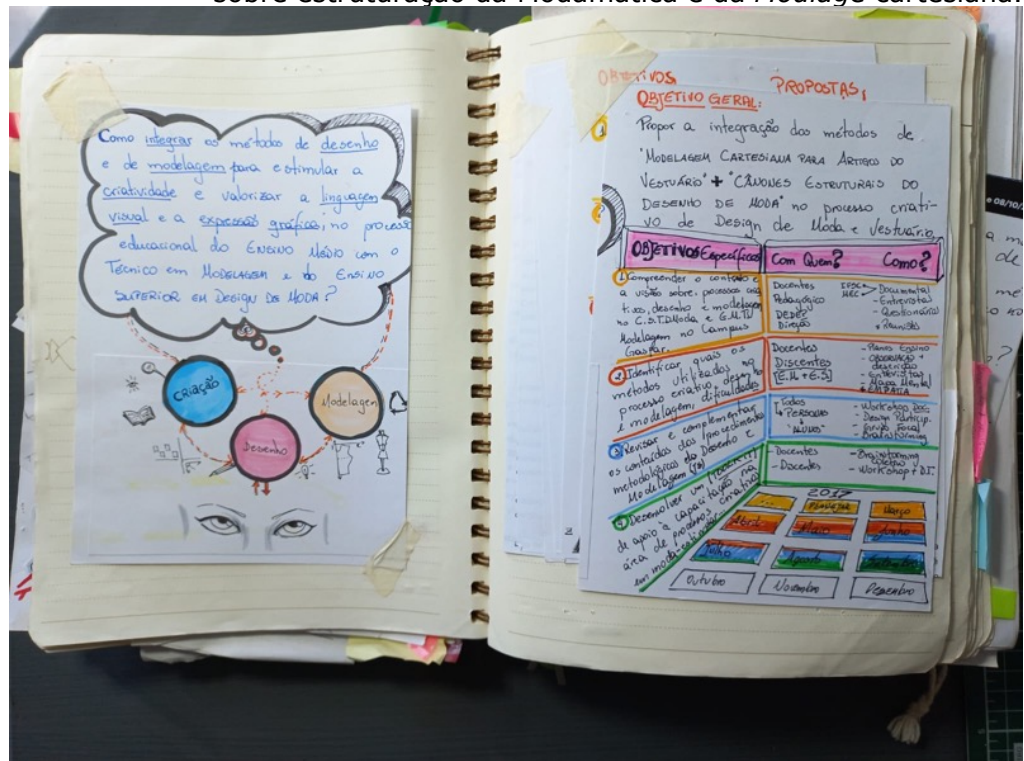 sobre estruturação da Modamática e da Moulage cartesiana.
Como integrar os métodos de desenho
e de modelagem para estimular a
criatividade e valorizar a linguagem
visual e a expressão gráfica, no processo
educacional do Ensino Médio com o
Técnico em Modelagem e do Ensino
Superior em Design de Moda?
Criação
Modelagem
Desenho
OBJETIVOS
PROPOSTAS,
OBJETIVO GERAL:
Propor a integração dos métodos de
"Modelagem Cartesiana para Artigos do
Vestuário" + "Cânones Estruturais do
Desenho de Moda" no processo criati-
vo de Design de Moda e Vestuário.
OBJETIVOS Específicos
Com Quem?
Como?
1 Compreender o contexto e
a visão sobre processo
desenho e modelagem
no C.S.T.D.Moda e E.M.T.
Modelagem no Campus
Gaspar.
Docentes
Pedagógico
DEPE
Direção
IFSC
MEC
Documental
- Entrevista
- Questionários
Reuniões
2 Identificar quais os
métodos utilizados no
processo criativo, desenho
e modelagem, dificuldades
Docentes
Discentes
[E.M + E.S]
- Planos Ensino
- Observação +
descrição
- Entrevistas
- Mapa Mental
Empatia
3 Revisar e complementar
os conteúdos dos procedimentos
metodológicos do Desenho e
Modelagem
Todos
Personas
"Alunos"
- Workshop
- Design Particip.
- Grupo Focal
- Brainstorming
4 Desenvolver um
de apoio à capacitação na
área de processos criativos
em moda
- Docentes
- Discentes
- Brainstorming
coletivo
- Workshop + D.I.
2017
Planejar
Março
Abril
Maio
Junho
Julho
Agosto
Setembro
Outubro
Novembro
Dezembro